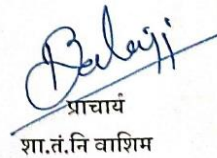 Balaji
प्राचार्य
शा.तं.नि वाशिम